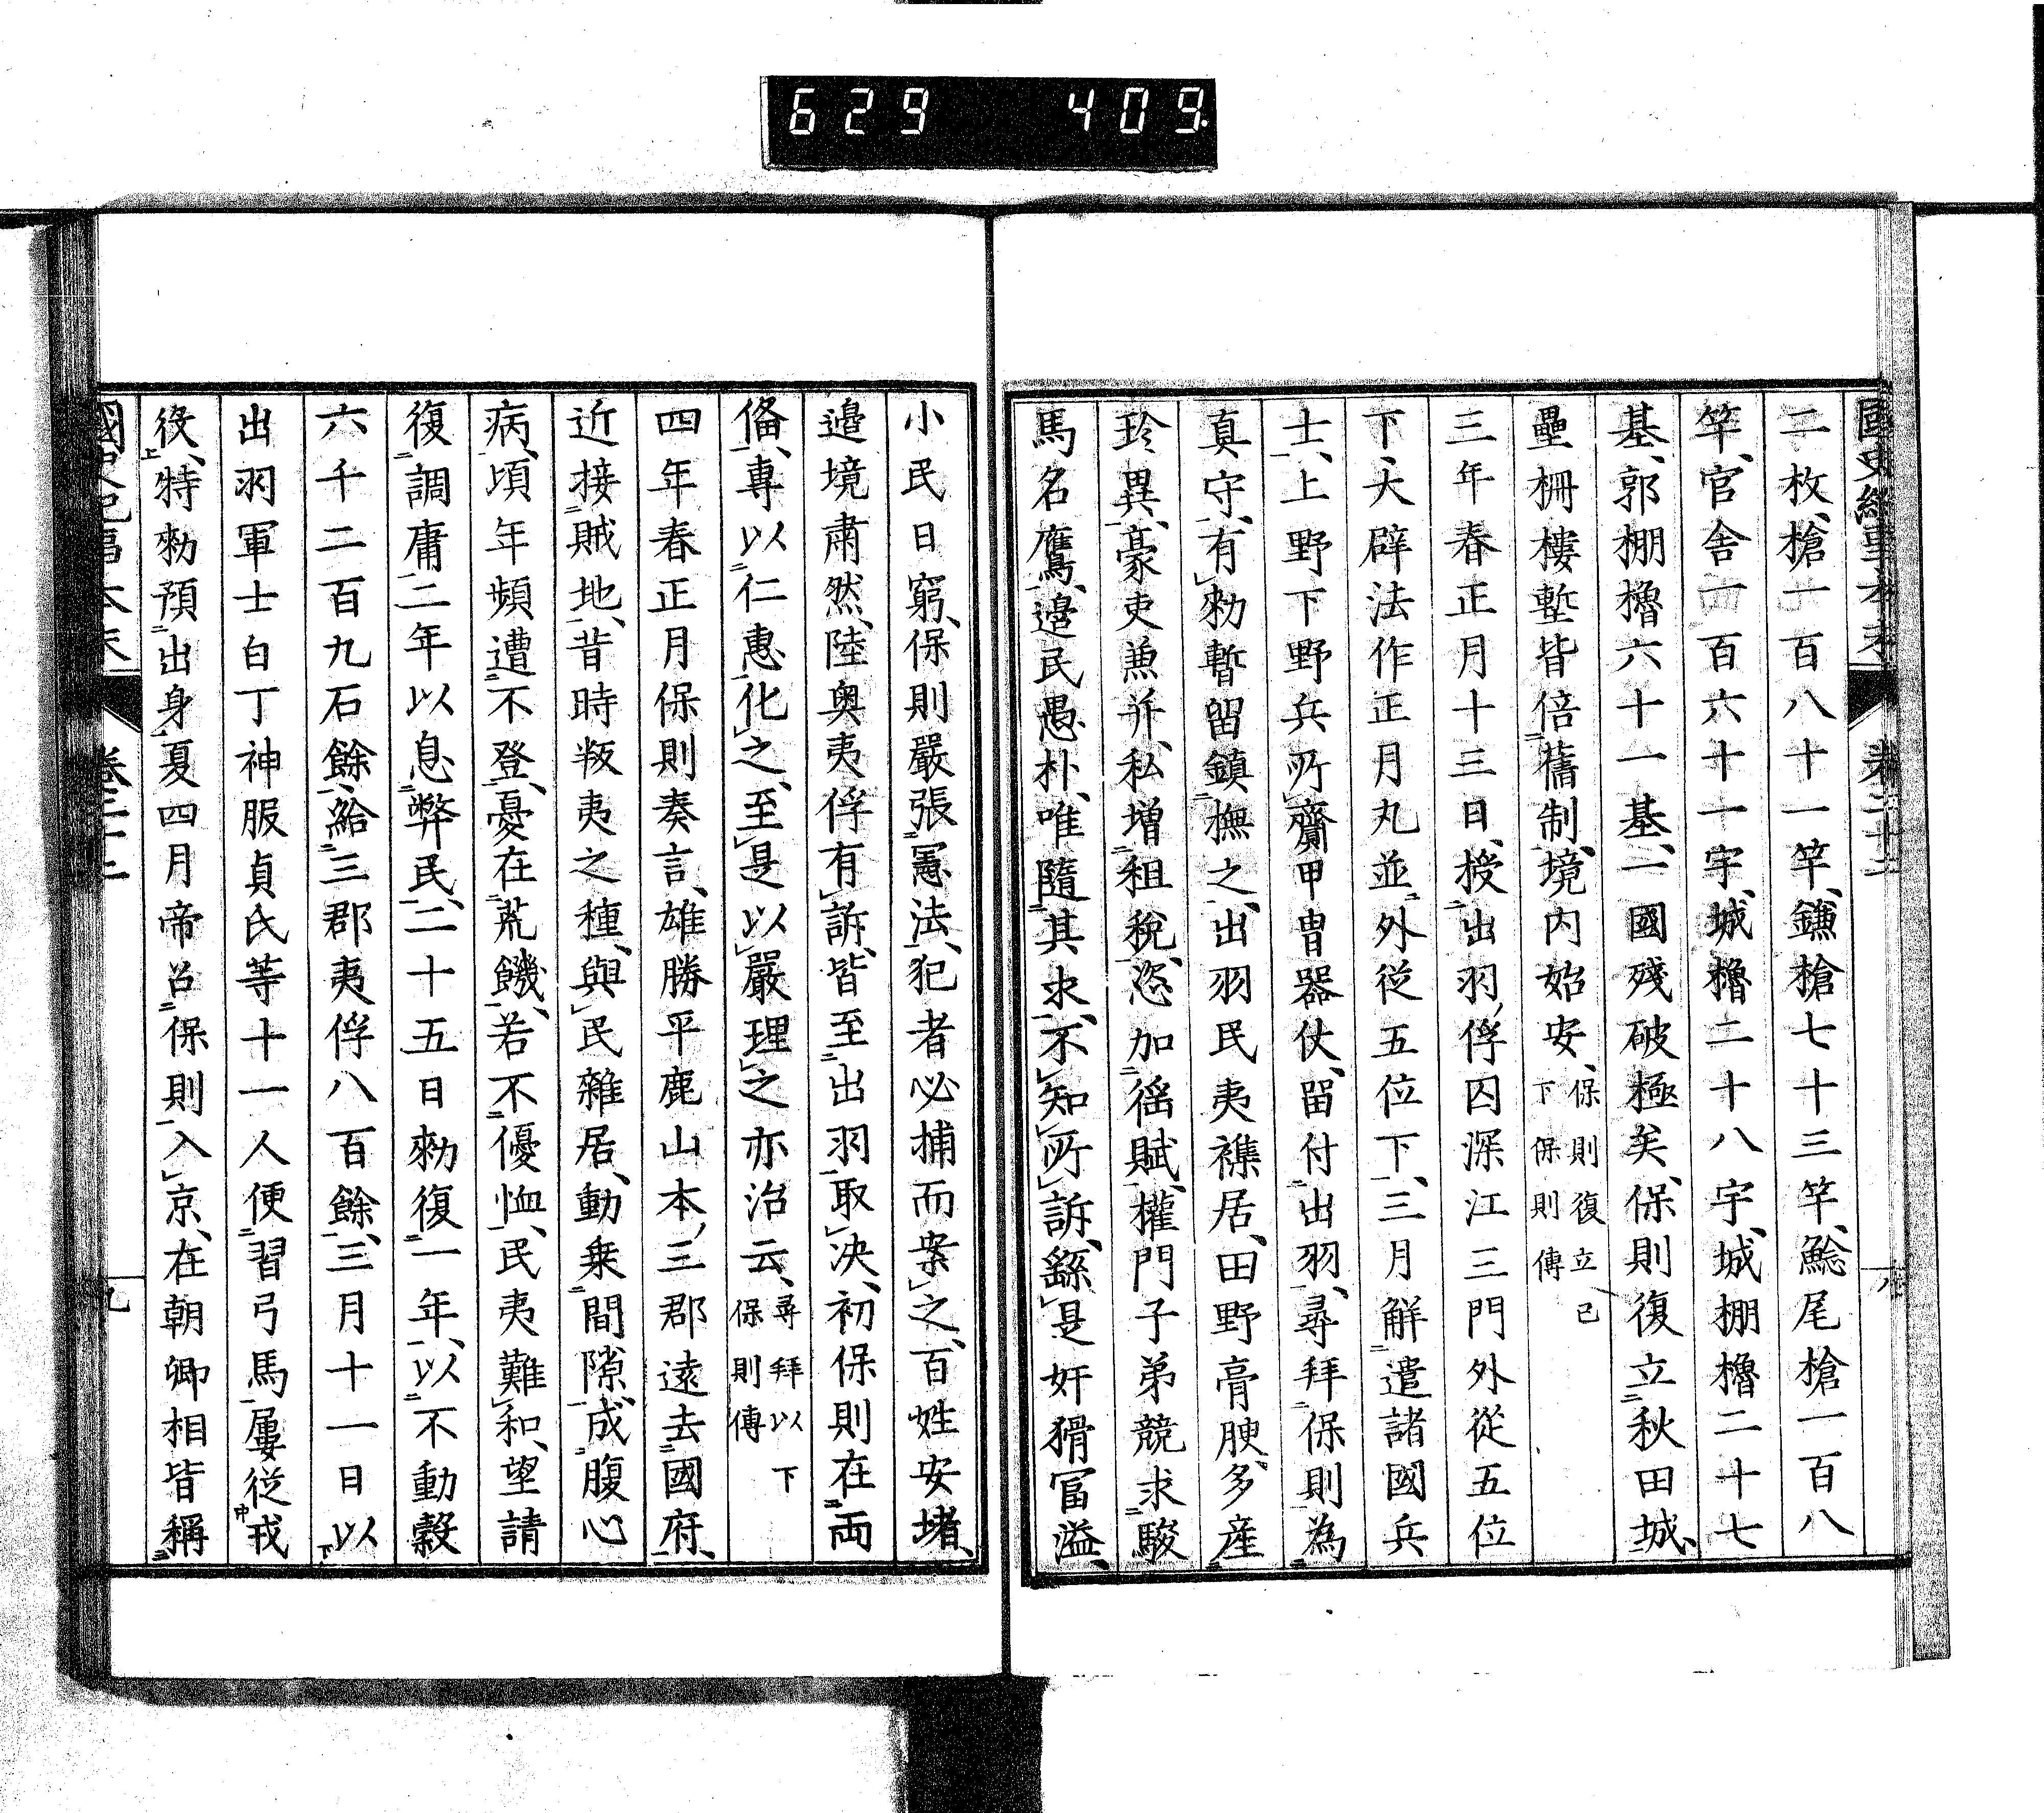 629 409
二枚、槍一百八十一竿、鎌槍七十三竿、鯰尾槍一百八
竿、官舎一百六十一宇、城櫓二十八宇、城棚櫓二十七
基、郭棚櫓六十一基、一國殘破極矣、保則復立秋田城、
壘柵樓塹皆倍舊制、境内始安、保則復立已下保則傳
三年春正月十三日、授出羽俘囚深江三門外從五位
下、大辟法作正月丸並外従五位下、三月解遣諸國兵
士、上野下野兵所齎甲冑器仗、留付出羽、尋拜保則為
真守、有勅暫留鎮撫之、出羽民夷襍居、田野膏腴、多産
珍異、豪吏兼并、私増租税、恣加徭賦、權門子弟競求駿
馬名鷹、邉民愚朴、唯隨其求、不知所訴、繇是奸猾冨溢、
小民日窮、保則嚴張憲法、犯者必捕而案之、百姓安堵、
邉境肅然、陸奥夷俘有訴、皆至出羽取决、初保則在両
俻、專以仁惠化之、至是以嚴理之亦治云、尋拜以下保則傳
四年春正月保則奏言、雄勝平鹿山本三郡遠去國府、
近接賊地、昔時叛夷之種、與民雜居、動乗間隙、成腹心
病、頃年頻遭不登、憂在荒饑、若不優恤、民夷難和、望請
復調庸二年以息弊民、二十五日勅復一年、以不動穀
六千二百九石餘、給三郡夷俘八百餘、三月十一日以
出羽軍士白丁神服貞氏等十一人便習弓馬屢從戎
役、特勅預出身、夏四月帝召保則入京、在朝卿相皆稱